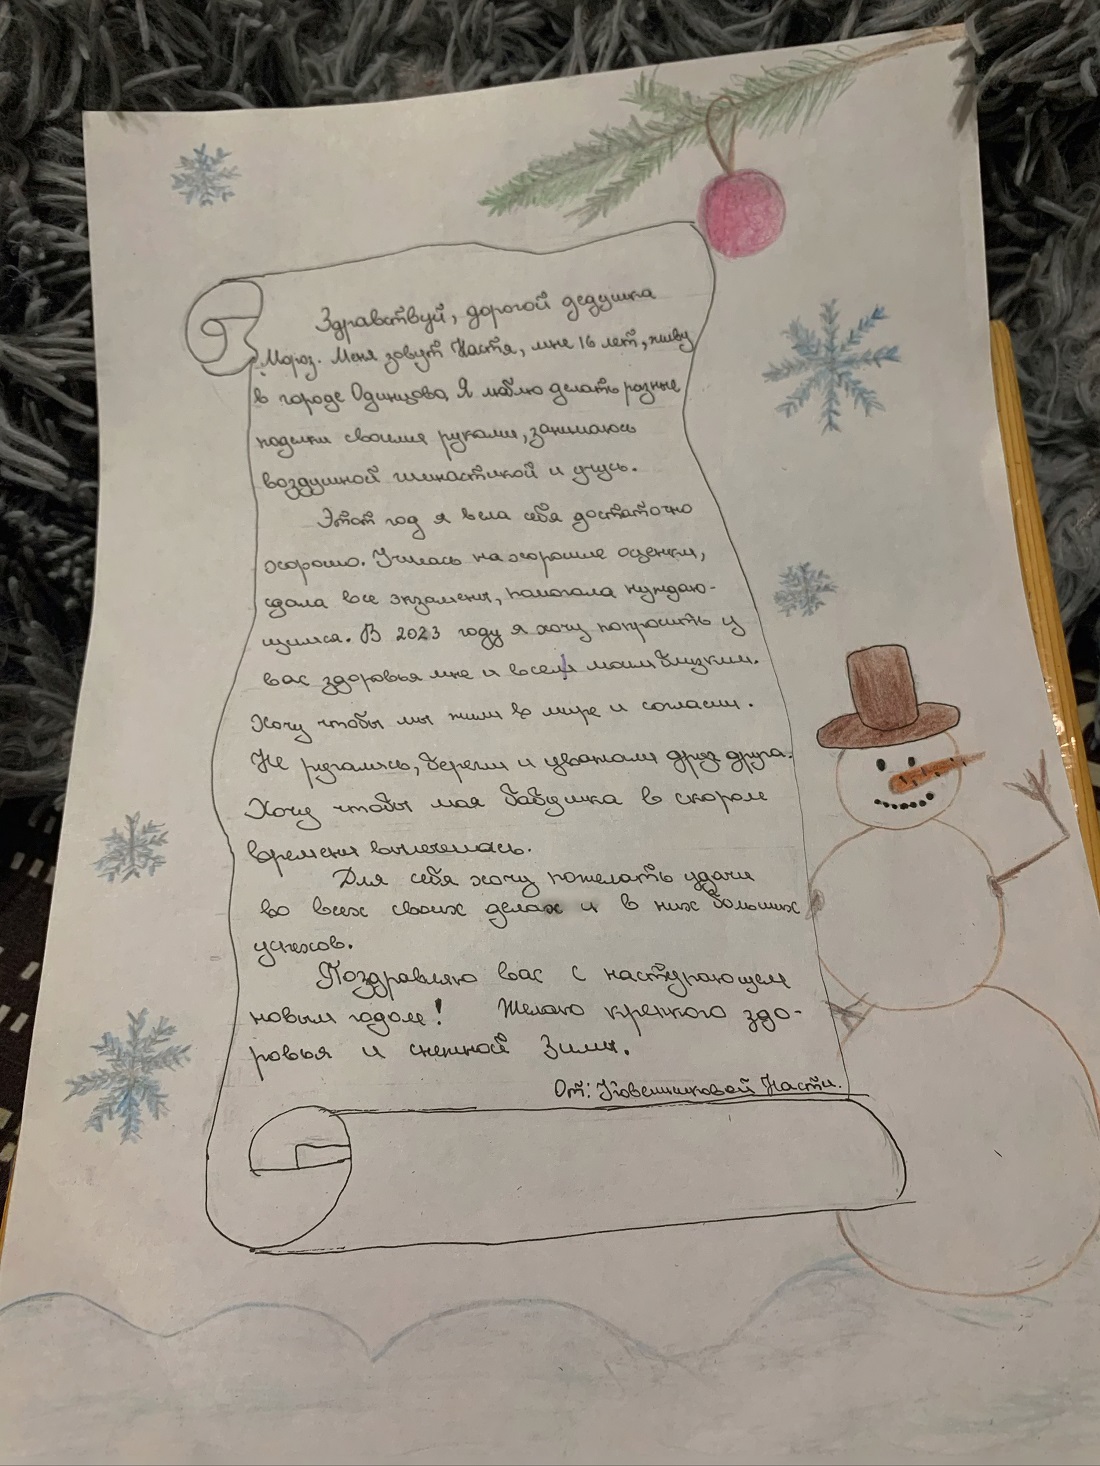 Здравствуй, дорогой дедушка
Мороз. Меня зовут Настя, мне 16 лет, живу
в городе Одинцово. Я люблю делать разные
поделки своими руками, занимаюсь
воздушной гимнастикой и учусь.
Этот год я вела себя достаточно
хорошо. Училась на хорошие оценки,
сдала все экзамены, помогала нуждаю-
щимся. В 2023 году я хочу попросить у
вас здоровья мне и всем моим близким.
Хочу чтобы мы жили в мире и согласии.
Не ругались, берегли и уважали друг друга.
Хочу чтобы моя бабушка в скором
времени вылечилась.
Для себя хочу пожелать удачи
во всех своих делах и в них больших
успехов.
Поздравляю вас с наступающем
новым годом! Желаю крепкого здо-
ровья и снежной зимы.
От: Настии.